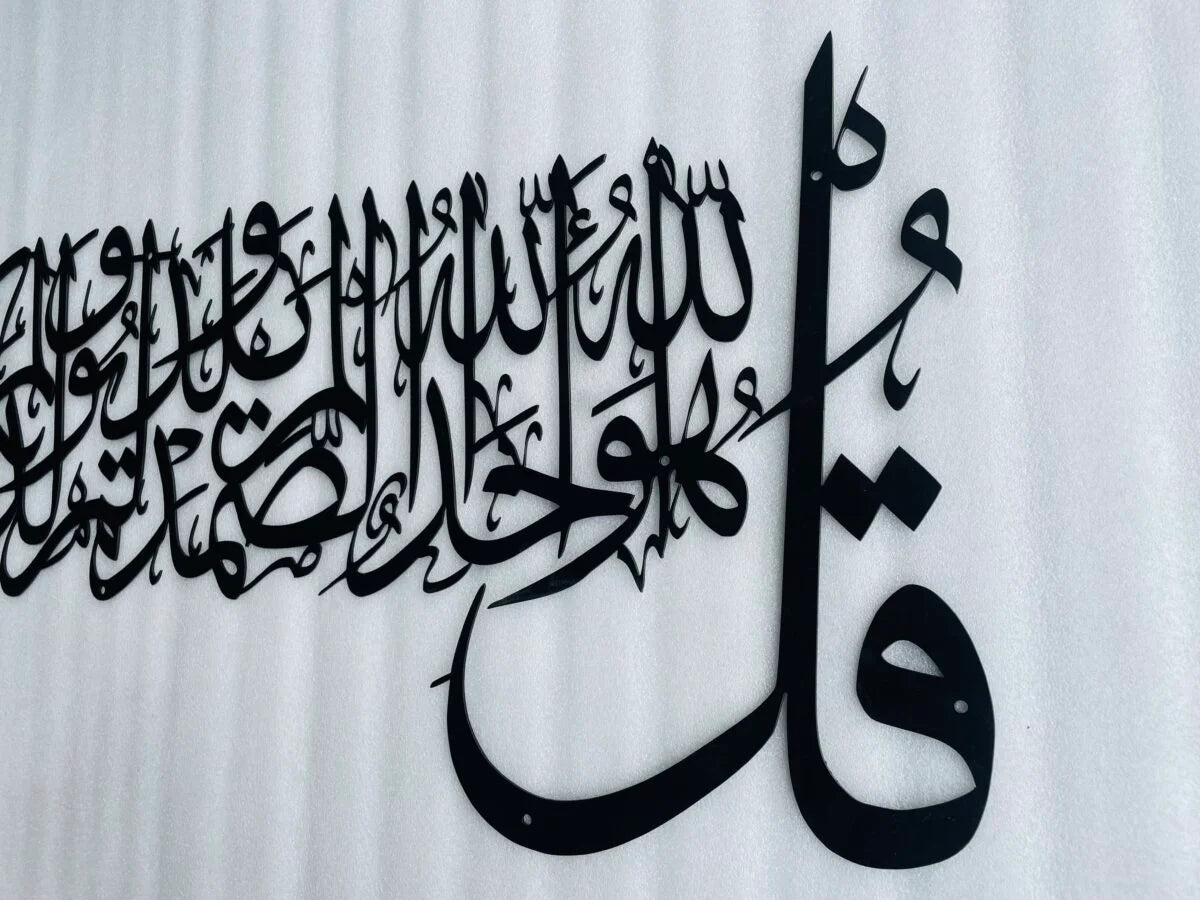 قُلْ هُوَ اللّٰهُ أَحَدٌ اللّٰهُ الصَّمَدُ لَمْ يَلِدْ وَلَمْ يُولَدْ